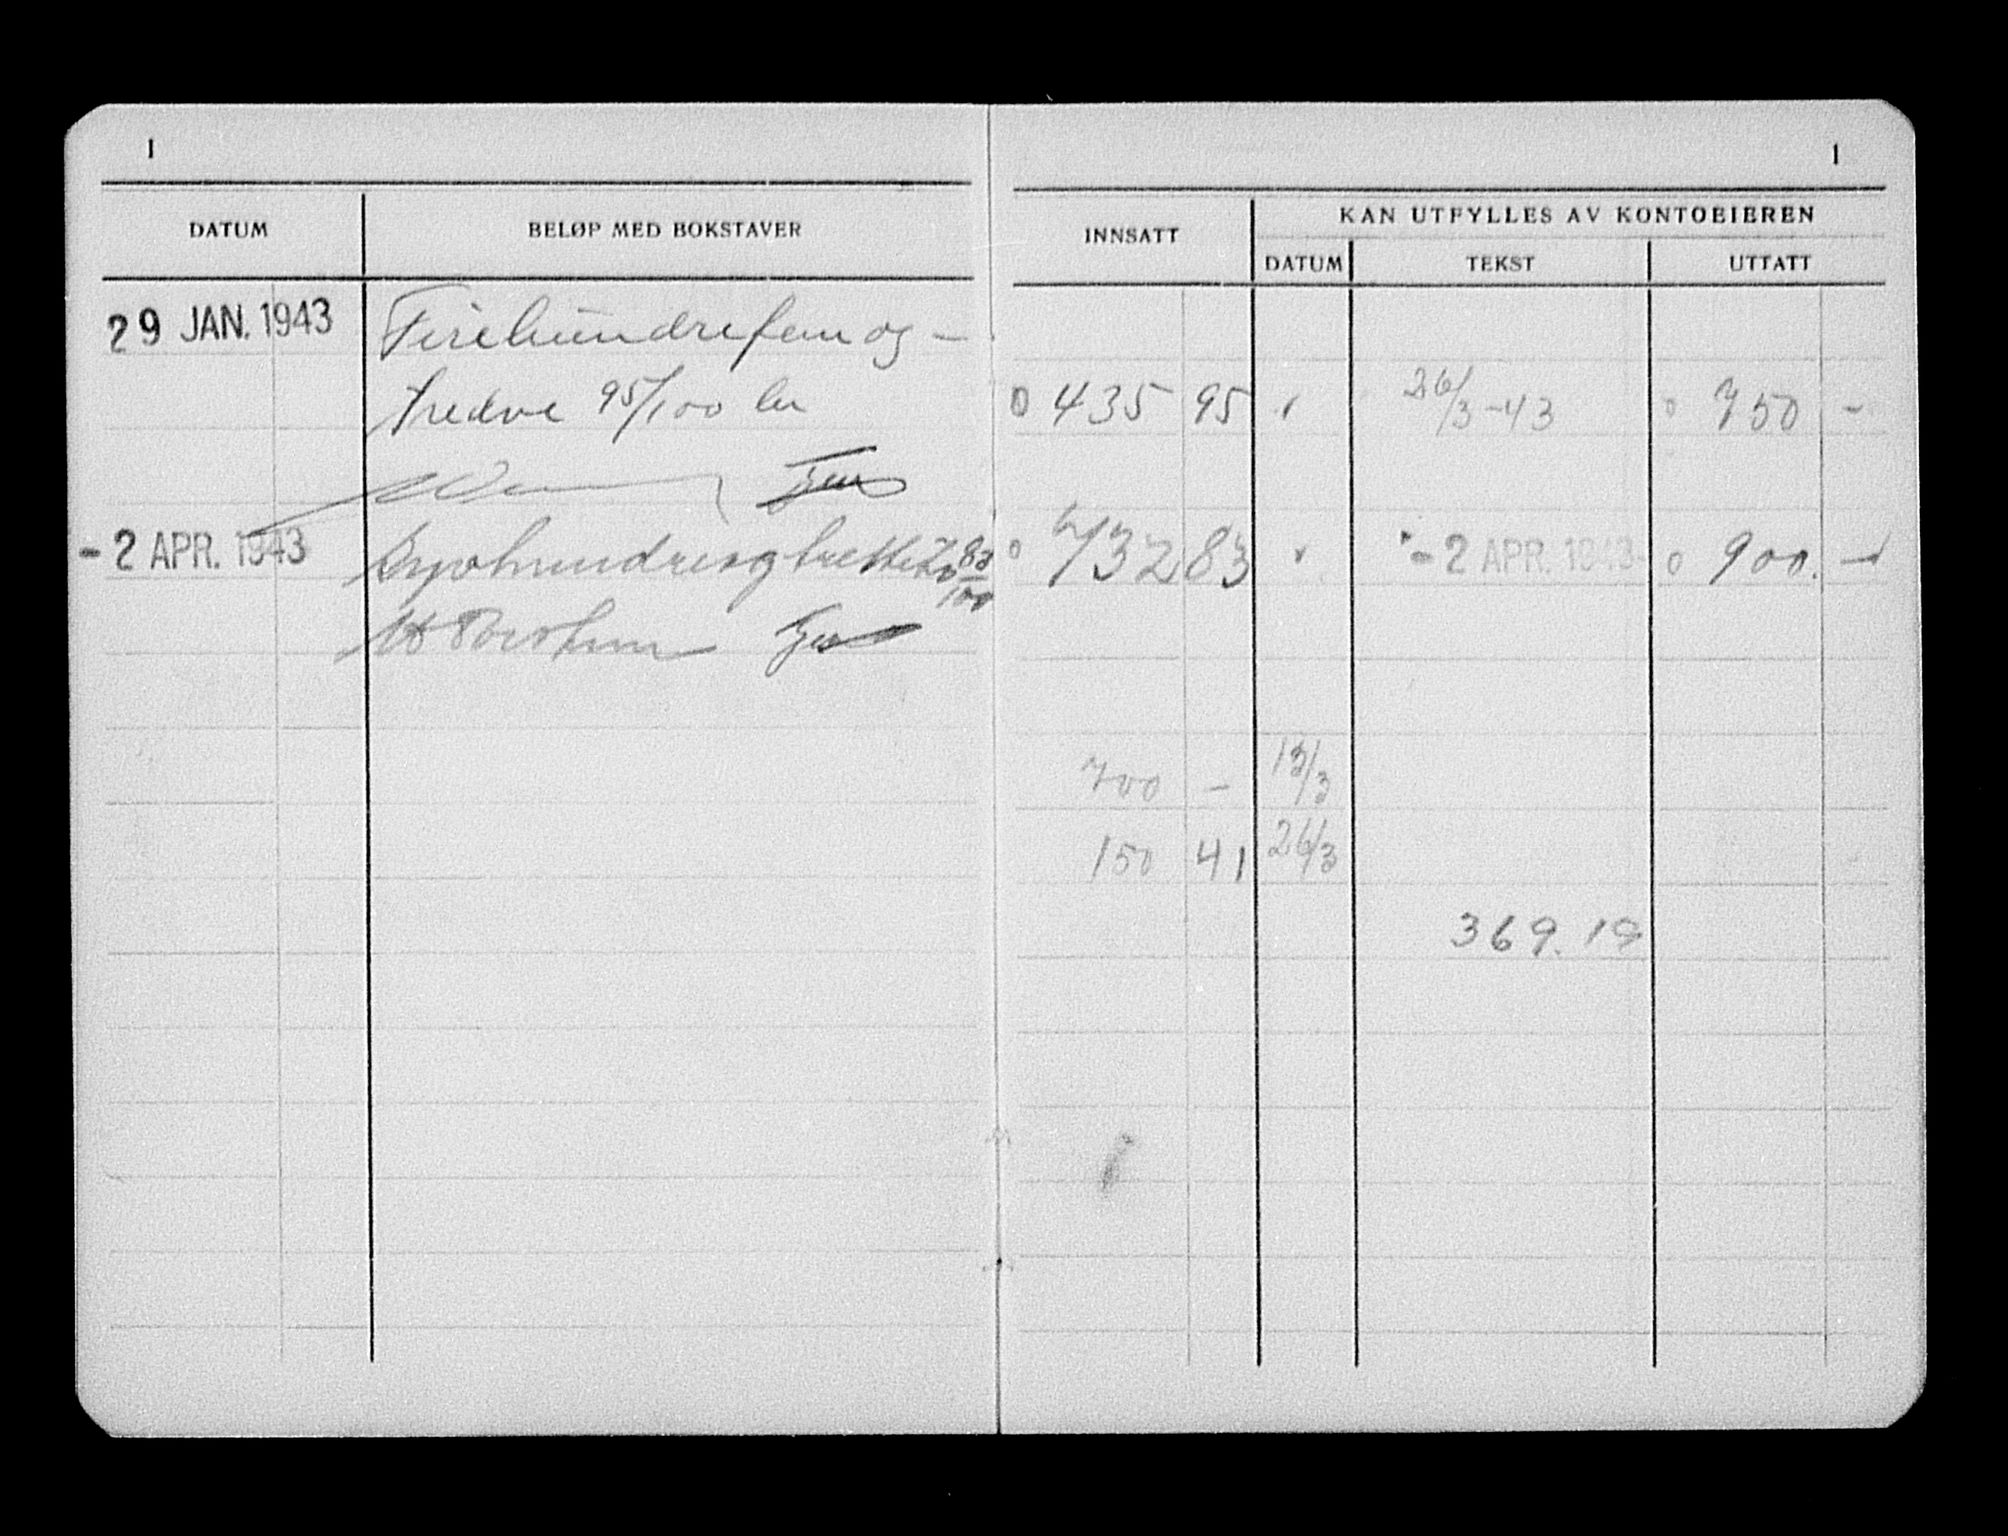 1
1
DATUM BELØP MED BOKSTAVER INNSATT KAN UTFYLLES AV KONTOEIEREN
DATUM TEKST UTTATT
29 JAN. 1943 Firehundrefem og –
tredve 95/100 kr 0 435 95 26/3-43 0 750 –
- 2 APR. 1943 Syvhundreogtrettito 83/100 0 732 83 - 2 APR. 1943 0 900. –
700 – 13/3
150 41 26/3
369.19